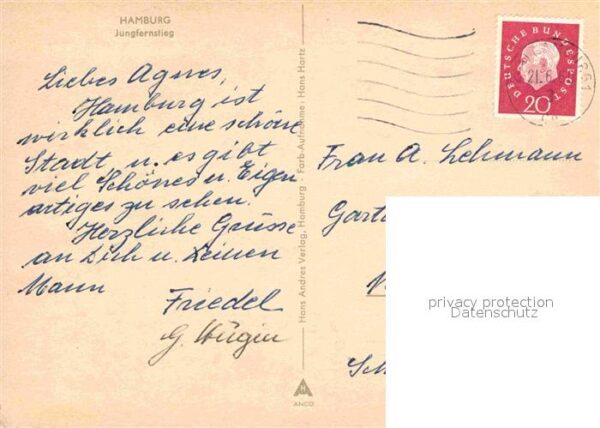 HAMBURG
Jungfernstieg
Liebes Agnes,
Hamburg ist
wirklich eine schöne
Stadt, u. es gibt
viel Schönes u. Eigen
artiges zu sehen.
Herzliche Grüsse
an Dich u. Deinen
Mann
Friedel
G.
Hans Andres Verlag, Hamburg - Farb-Aufnahme: Hans Hartz
ANCO
DEUTSCHE BUNDESPOST
20
21.6
Frau A. Lehmann
Garta
privacy protection
Datenschutz